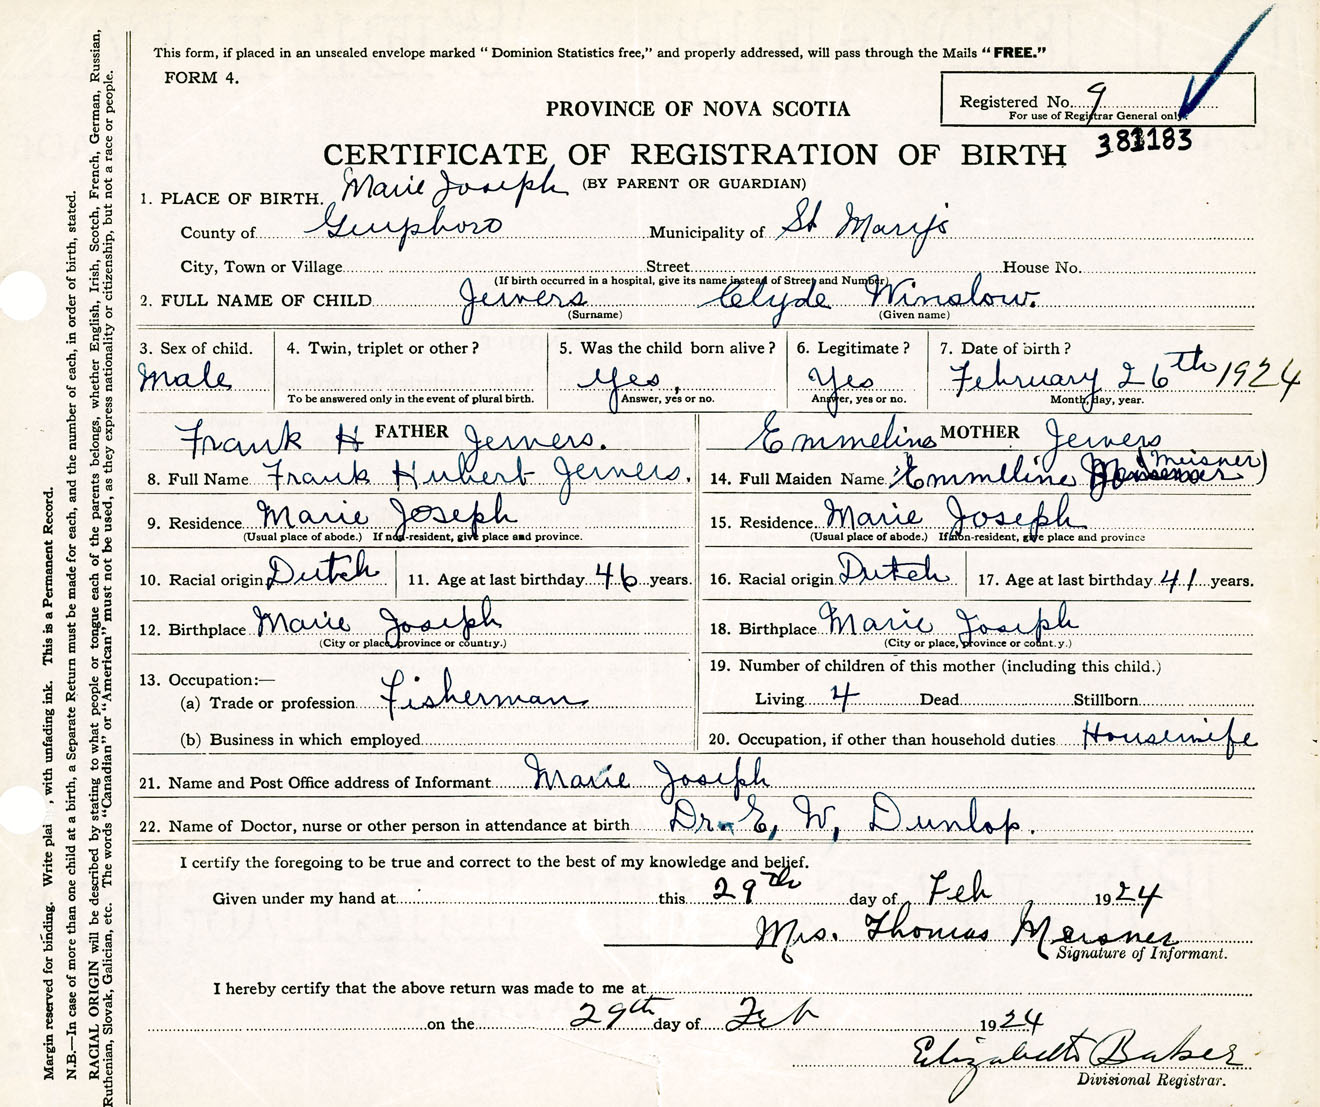 This form, if placed in an unsealed envelope marked "Dominion Statistics free," and properly addressed, will pass through the Mails "FREE."
FORM 4.
PROVINCE OF NOVA SCOTIA
Registered No. 9
For use of Registrar General only.
383183
CERTIFICATE OF REGISTRATION OF BIRTH
(BY PARENT OR GUARDIAN)
1. PLACE OF BIRTH. Marie Joseph
County of Guysboro Municipality of St Mary's
City, Town or Village Street House No.
(If birth occurred in a hospital, give its name instead of Street and Number)
2. FULL NAME OF CHILD Jewers Clyde Winslow.
(Surname) (Given name)
3. Sex of child. 4. Twin, triplet or other? 5. Was the child born alive? 6. Legitimate? 7. Date of birth?
Male Yes, Yes February 26th 1924
To be answered only in the event of plural birth. Answer, yes or no. Answer, yes or no. Month, day, year.
Frank H FATHER Jewers. Emmeline MOTHER Jewers
8. Full Name Frank Hubert Jewers. 14. Full Maiden Name Emmeline (Meisner)
9. Residence Marie Joseph 15. Residence Marie Joseph
(Usual place of abode.) If non-resident, give place and province. (Usual place of abode.) If non-resident, give place and province
10. Racial origin Dutch 11. Age at last birthday 46 years. 16. Racial origin Dutch 17. Age at last birthday 41 years.
12. Birthplace Marie Joseph 18. Birthplace Marie Joseph
(City or place, province or country.) (City or place, province or count.y.)
13. Occupation:— 19. Number of children of this mother (including this child.)
(a) Trade or profession Fisherman Living 4 Dead Stillborn
(b) Business in which employed 20. Occupation, if other than household duties Housewife
21. Name and Post Office address of Informant Marie Joseph
22. Name of Doctor, nurse or other person in attendance at birth Dr. E, W, Dunlop.
I certify the foregoing to be true and correct to the best of my knowledge and belief.
Given under my hand at this 29th day of Feb 1924
Mrs. Thomas Meisner
Signature of Informant.
I hereby certify that the above return was made to me at
on the 29th day of Feb 1924
Elizabeth Baker
Divisional Registrar.
Margin reserved for binding. Write plai , with unfading ink. This is a Permanent Record.
N.B.—In case of more than one child at a birth, a Separate Return must be made for each, and the number of each, in order of birth, stated.
RACIAL ORIGIN will be described by stating to what people or tongue each of the parents belongs, whether English, Irish, Scotch, French, German, Russian,
Ruthenian, Slovak, Galician, etc. The words "Canadian" or "American" must not be used, as they express nationality or citizenship, but not a race or people.